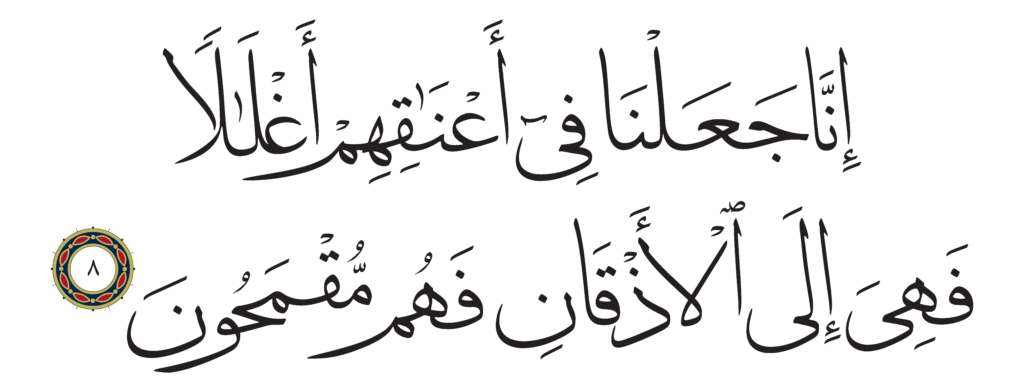 إِنَّا جَعَلْنَا فِىٓ أَعْنَٰقِهِمْ أَغْلَٰلًا
فَهِىَ إِلَى ٱلْأَذْقَانِ فَهُم مُّقْمَحُونَ ٨